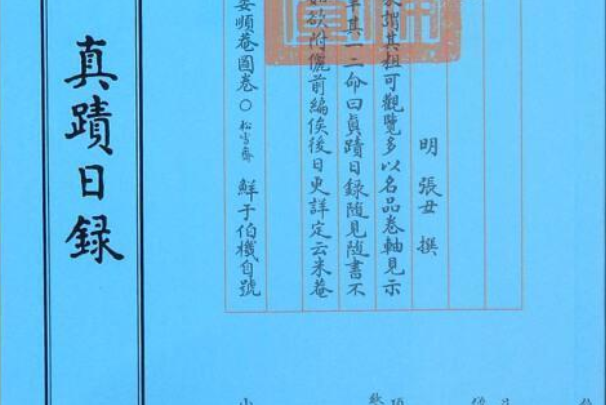 真蹟日録
明 張丑 撰
其粗可觀覽多以名品卷軸見示
其一二命曰眞蹟日錄隨見隨書不
欲附儷前編俟後日更詳定云米菴
順菴圖卷○松雪齋 鮮于伯機自號